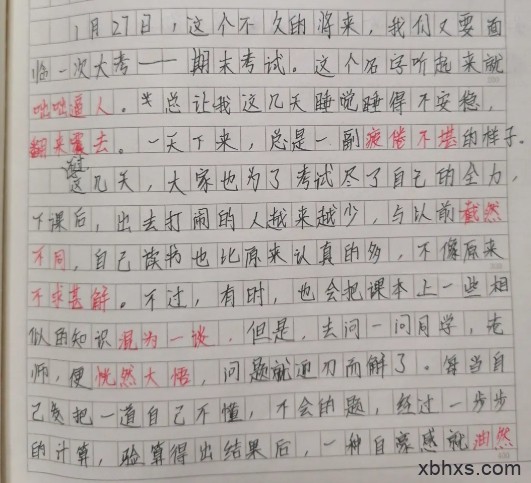 1月27日，这个不久的将来，我们又要面
临一次大考——期末考试。这个名字听起来就
咄咄逼人。总让我这几天睡觉睡得不安稳，
翻来覆去。一天下来，总是一副疲倦不堪的样子。
这几天，大家也为了考试尽了自己的全力，
下课后，出去打闹的人越来越少，与以前截然
不同，自己读书也比原来认真的多，不像原来
不求甚解。不过，有时，也会把课本上一些相
似的知识混为一谈，但是，去问一问同学，老
师，便恍然大悟，问题就迎刃而解了。每当自
己把一道自己不懂，不会的题，经过一步步
的计算，验算得出结果后，一种自豪感就油然
xbhxs.com